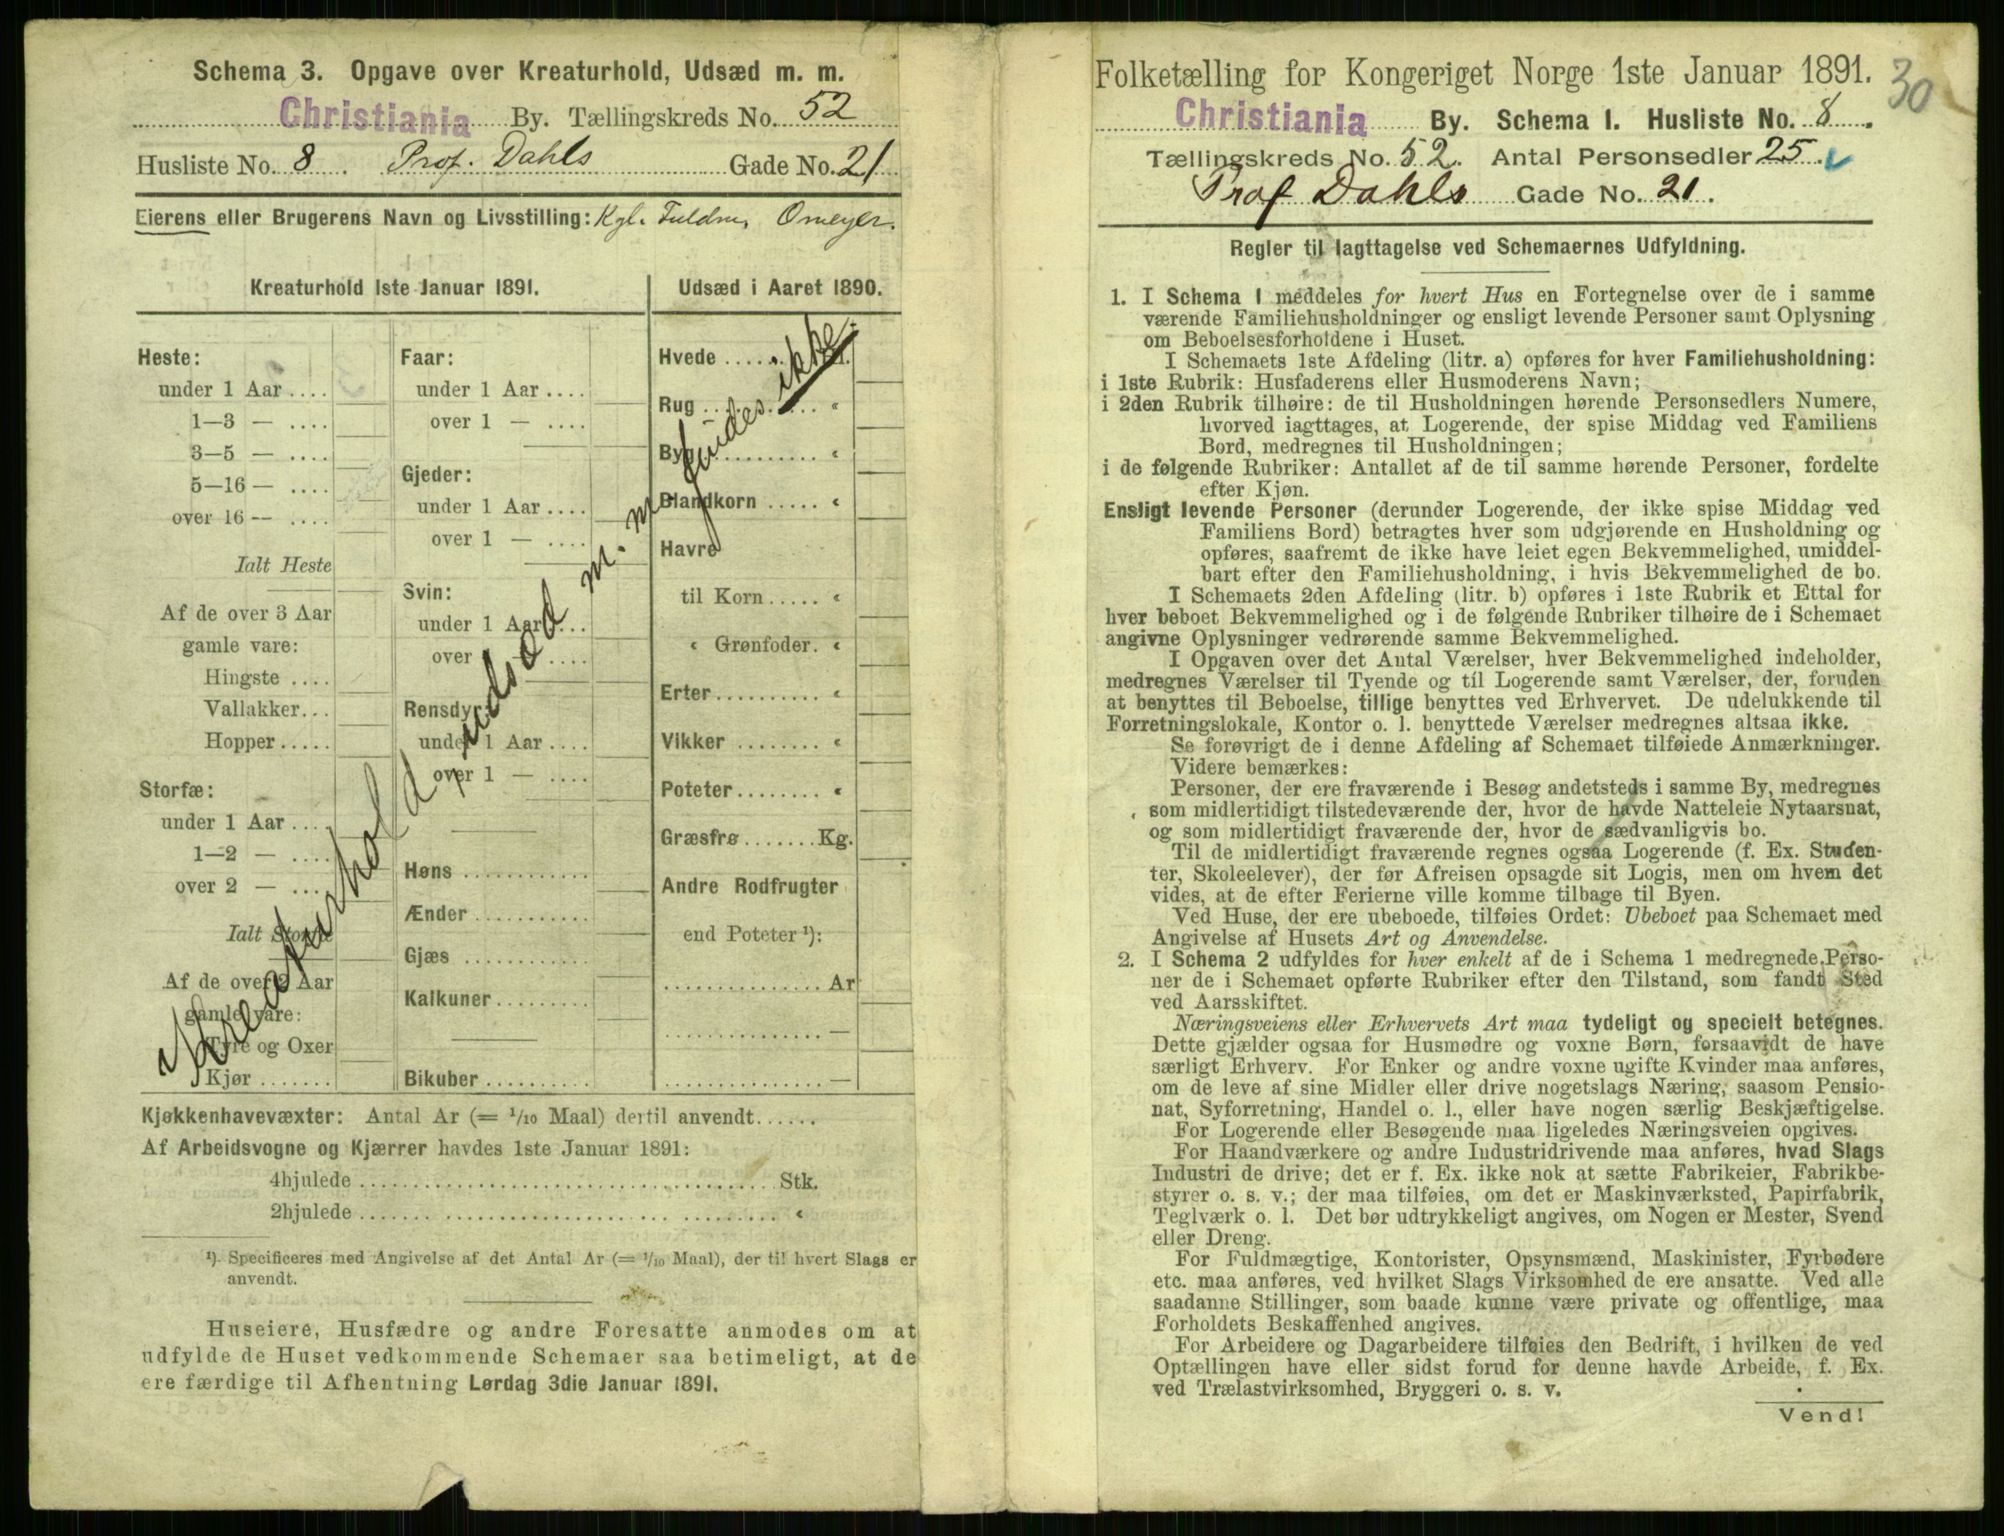 Schema 3. Opgave over Kreaturhold, Udsæd m. m.
Christiania By. Tællingskreds No. 52
Husliste No. 8. Prof. Dahls Gade No. 21
Eierens eller Brugerens Navn og Livsstilling: Kgl. Fuldm. Omeyer.
Kreaturhold 1ste Januar 1891.
Heste:
under 1 Aar ....
1—3 — ....
3—5 — ....
5—16 — ....
over 16 — ....
Ialt Heste
Af de over 3 Aar
gamle vare:
Hingste ....
Vallakker...
Hopper.....
Storfæ:
under 1 Aar ....
1—2 — ....
over 2 — ....
Ialt Storfæ
Af de over 2 Aar
gamle vare:
Tyre og Oxer
Kjør .......
Faar:
under 1 Aar ....
over 1 — ....
Gjeder:
under 1 Aar ....
over 1 — ....
Svin:
under 1 Aar ....
over — ....
Rensdyr:
under 1 Aar ....
over 1 — ....
Høns ...........
Ænder ..........
Gjæs ...........
Kalkuner ........
Bikuber .........
Udsæd i Aaret 1890.
Hvede ...... Hl.
Rug ........ "
Byg ........ "
Blandkorn ..... "
Havre
til Korn..... "
" Grønfoder. "
Erter......... "
Vikker ....... "
Poteter....... "
Græsfrø ...... Kg.
Andre Rodfrugter
end Poteter ¹):
............. Ar
............. —
............. —
Kreaturhold, udsæd m. m. findes ikke.
Kjøkkenhavevæxter: Antal Ar (= 1/10 Maal) dertil anvendt......
Af Arbeidsvogne og Kjærrer havdes 1ste Januar 1891:
4hjulede ........................ Stk.
2hjulede ........................ "
¹). Specificeres med Angivelse af det Antal Ar (= 1/10 Maal), der til hvert Slags er
anvendt.
Huseiere, Husfædre og andre Foresatte anmodes om at
udfylde de Huset vedkommende Schemaer saa betimeligt, at de
ere færdige til Afhentning Lørdag 3die Januar 1891.
30
Folketælling for Kongeriget Norge 1ste Januar 1891.
Christiania By. Schema 1. Husliste No. 8.
Tællingskreds No. 52. Antal Personsedler 25.
Prof Dahls Gade No. 21.
Regler til Iagttagelse ved Schemaernes Udfyldning.
1. I Schema 1 meddeles for hvert Hus en Fortegnelse over de i samme
værende Familiehusholdninger og ensligt levende Personer samt Oplysning
om Beboelsesforholdene i Huset.
I Schemaets 1ste Afdeling (litr. a) opføres for hver Familiehusholdning:
i 1ste Rubrik: Husfaderens eller Husmoderens Navn;
i 2den Rubrik tilhøire: de til Husholdningen hørende Personsedlers Numere,
hvorved iagttages, at Logerende, der spise Middag ved Familiens
Bord, medregnes til Husholdningen;
i de følgende Rubriker: Antallet af de til samme hørende Personer, fordelte
efter Kjøn.
Ensligt levende Personer (derunder Logerende, der ikke spise Middag ved
Familiens Bord) betragtes hver som udgjørende en Husholdning og
opføres, saafremt de ikke have leiet egen Bekvemmelighed, umiddel-
bart efter den Familiehusholdning, i hvis Bekvemmelighed de bo.
I Schemaets 2den Afdeling (litr. b) opføres i 1ste Rubrik et Ettal for
hver beboet Bekvemmelighed og i de følgende Rubriker tilhøire de i Schemaet
angivne Oplysninger vedrørende samme Bekvemmelighed.
I Opgaven over det Antal Værelser, hver Bekvemmelighed indeholder,
medregnes Værelser til Tyende og til Logerende samt Værelser, der, foruden
at benyttes til Beboelse, tillige benyttes ved Erhvervet. De udelukkende til
Forretningslokale, Kontor o. l. benyttede Værelser medregnes altsaa ikke.
Se forøvrigt de i denne Afdeling af Schemaet tilføiede Anmærkninger.
Videre bemærkes:
Personer, der ere fraværende i Besøg andetsteds i samme By, medregnes
som midlertidigt tilstedeværende der, hvor de havde Natteleie Nytaarsnat,
og som midlertidigt fraværende der, hvor de sædvanligvis bo.
Til de midlertidigt fraværende regnes ogsaa Logerende (f. Ex. Studen-
ter, Skoleelever), der før Afreisen opsagde sit Logis, men om hvem det
vides, at de efter Ferierne ville komme tilbage til Byen.
Ved Huse, der ere ubeboede, tilføies Ordet: Ubeboet paa Schemaet med
Angivelse af Husets Art og Anvendelse.
2. I Schema 2 udfyldes for hver enkelt af de i Schema 1 medregnede Perso-
ner de i Schemaet opførte Rubriker efter den Tilstand, som fandt Sted
ved Aarsskiftet.
Næringsveiens eller Erhvervets Art maa tydeligt og specielt betegnes.
Dette gjælder ogsaa for Husmødre og voxne Børn, forsaavidt de have
særligt Erhverv. For Enker og andre voxne ugifte Kvinder maa anføres,
om de leve af sine Midler eller drive nogetslags Næring, saasom Pensio-
nat, Syforretning, Handel o. l., eller have nogen særlig Beskjæftigelse.
For Logerende eller Besøgende maa ligeledes Næringsveien opgives.
For Haandværkere og andre Industridrivende maa anføres, hvad Slags
Industri de drive; det er f. Ex. ikke nok at sætte Fabrikeier, Fabrikbe-
styrer o. s. v.; der maa tilføies, om det er Maskinværksted, Papirfabrik,
Teglværk o. l. Det bør udtrykkeligt angives, om Nogen er Mester, Svend
eller Dreng.
For Fuldmægtige, Kontorister, Opsynsmænd, Maskinister, Fyrbødere
etc. maa anføres, ved hvilket Slags Virksomhed de ere ansatte. Ved alle
saadanne Stillinger, som baade kunne være private og offentlige, maa
Forholdets Beskaffenhed angives.
For Arbeidere og Dagarbeidere tilføies den Bedrift, i hvilken de ved
Optællingen have eller sidst forud for denne havde Arbeide, f. Ex.
ved Trælastvirksomhed, Bryggeri o. s. v.
Vend!